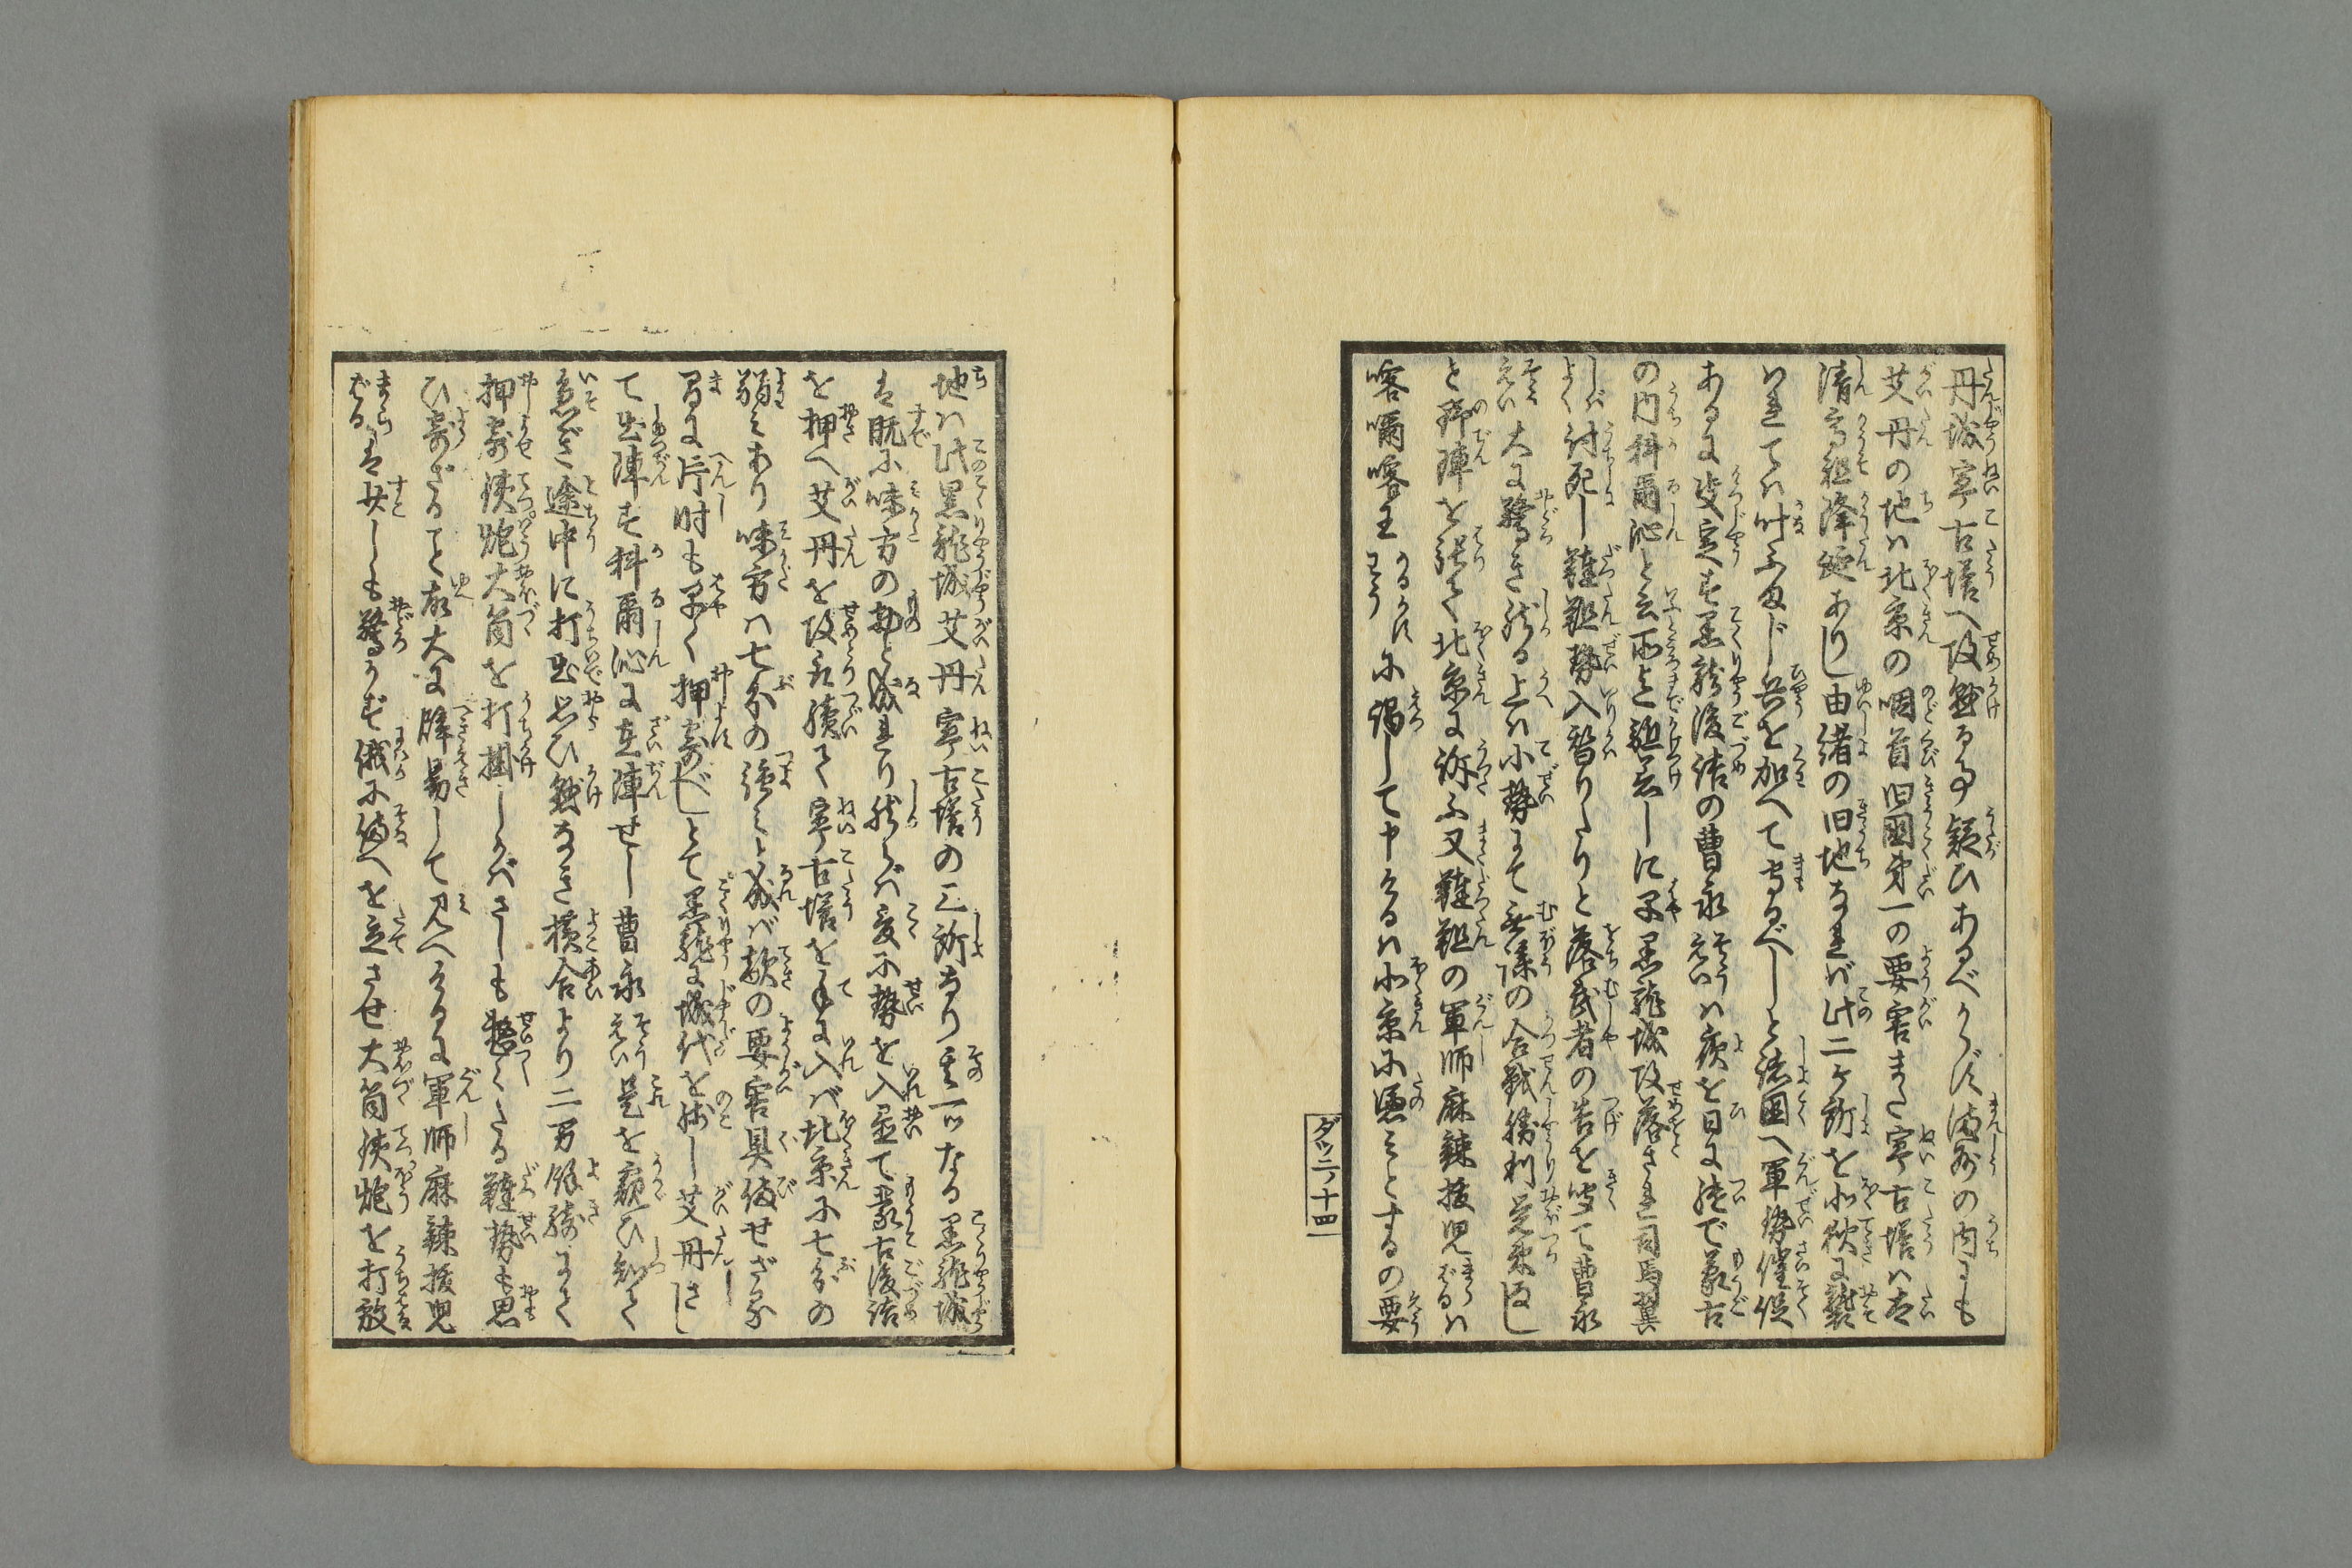 丹城寧古塔へ攻懸る事疑ひあるべからず満州の内にも
艾丹の地ハ北京の咽首旧国第一の要害また寧古塔ハ太
清高祖降誕ありし由緒の旧地なれバ此二ヶ所を北狄に襲
ハれてハ叶ふまじ兵を加へて守るべしと諸国へ軍勢催促
あるに決定へず黒龍後詰の曹永ハ夜を日に継で蒙古
の内科爾沁と云所迄駆着しに早黒龍城攻落され司馬翼
よく討死し韃靼勢入替りたりと落武者の告を聞て曹永
大に驚き然る上ハ小勢にて無謀の合戦勝利覚束なし
と野陣を張て北京に訴ふ又韃靼の軍師麻辣抜児ハ
喀嚼喀王に謁して申けるハ北京に憑みとするの要
ダツ二ノ十四
地ハ此黒龍城艾丹寧古塔の三所なり其一ツなる黒龍城
は既に味方の物と成れり然らバ爰に勢を入置て蒙古後詰
を押へ艾丹を攻取續て寧古塔を手に入バ北京に七分の
弱ミあり味方ハ七分の強ミ成バ敵の要害具備せざる
間に片時も早く押寄べしとて黒龍に城代を残し艾丹さし
て出陣す科爾沁に在陣せし曹永是を窺ひ知て
急ぎ途中に打出思ひ懸なき横合より二万餘騎にて
押寄鉄炮大筒を打掛しかバさしも勢くたる韃勢も思
ひ寄ざること故大に辟易して見へけるに軍師麻辣抜児
は少しも驚かず俄に備へを立させ大筒鉄炮を打放